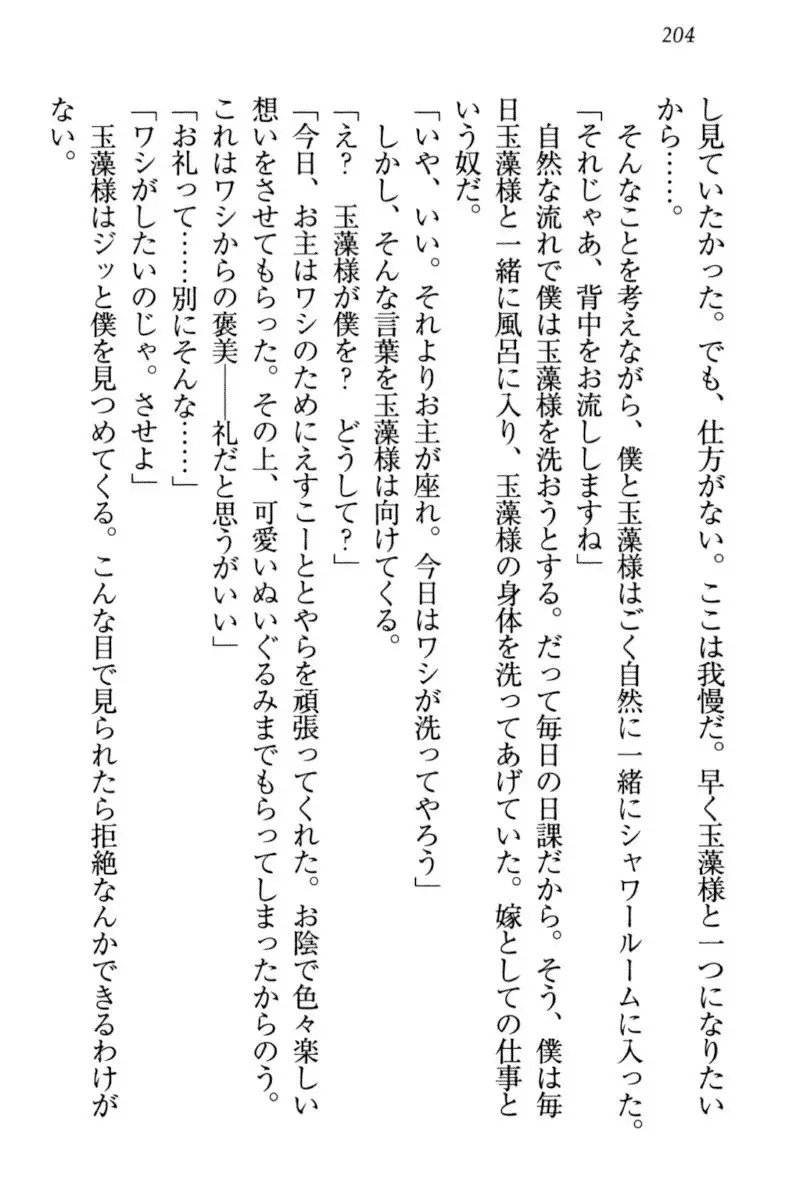 204
し見ていたかった。でも、仕方がない。ここは我慢だ。早く玉藻様と一つになりたい
から……。
そんなことを考えながら、僕と玉藻様はごく自然に一緒にシャワールームに入った。
「それじゃあ、背中をお流ししますね」
自然な流れで僕は玉藻様を洗おうとする。だって毎日の日課だから。そう、僕は毎
日玉藻様と一緒に風呂に入り、玉藻様の身体を洗ってあげていた。嫁としての仕事と
いう奴だ。
「いや、いい。それよりお主が座れ。今日はワシが洗ってやろう」
しかし、そんな言葉を玉藻様は向けてくる。
「え？　玉藻様が僕を？　どうして？」
「今日、お主はワシのためにえすこーととやらを頑張ってくれた。お陰で色々楽しい
想いをさせてもらった。その上、可愛いぬいぐるみまでもらってしまったからのう。
これはワシからの褒美――礼だと思うがいい」
「お礼って……別にそんな……」
「ワシがしたいのじゃ。させよ」
玉藻様はジッと僕を見つめてくる。こんな目で見られたら拒絶なんかできるわけが
ない。